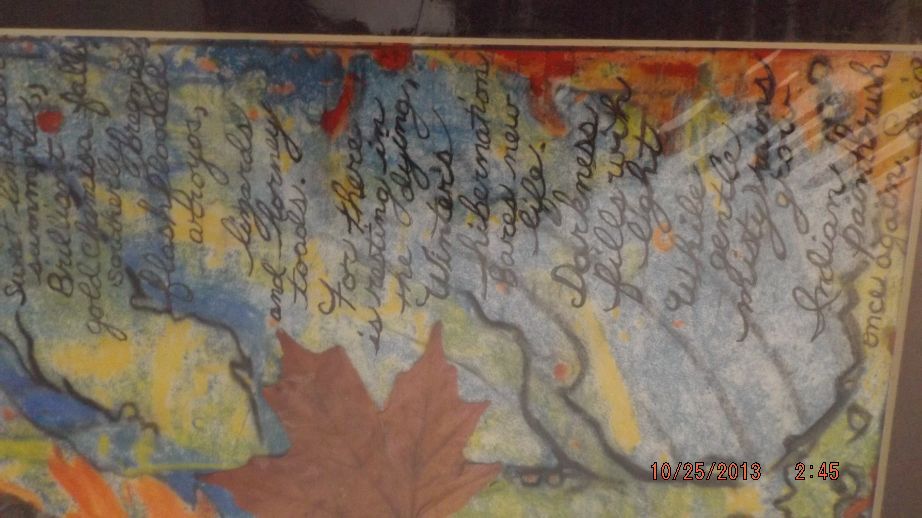 summer's,
Brilliant
gold chamisa fall
southerly breezes
flash flooded
arroyos,
lizards
and horney
toads.
For there
is resting in
the dying,
Winter's
hibernation
bares new
life.
Darkness
fills with
light
While
gentle
misty rains
grow
Indian
paintbrush
once again.
10/25/2013 2:45